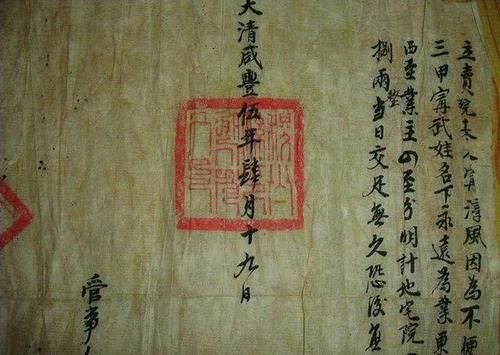 立賣院文人寗淳風因為不便
三甲寗武姓名下永遠為業東
西至業主四至分明計地宅院
捌兩整當日交足無欠恐後無
大清咸豐伍年肆月十九日
管事人